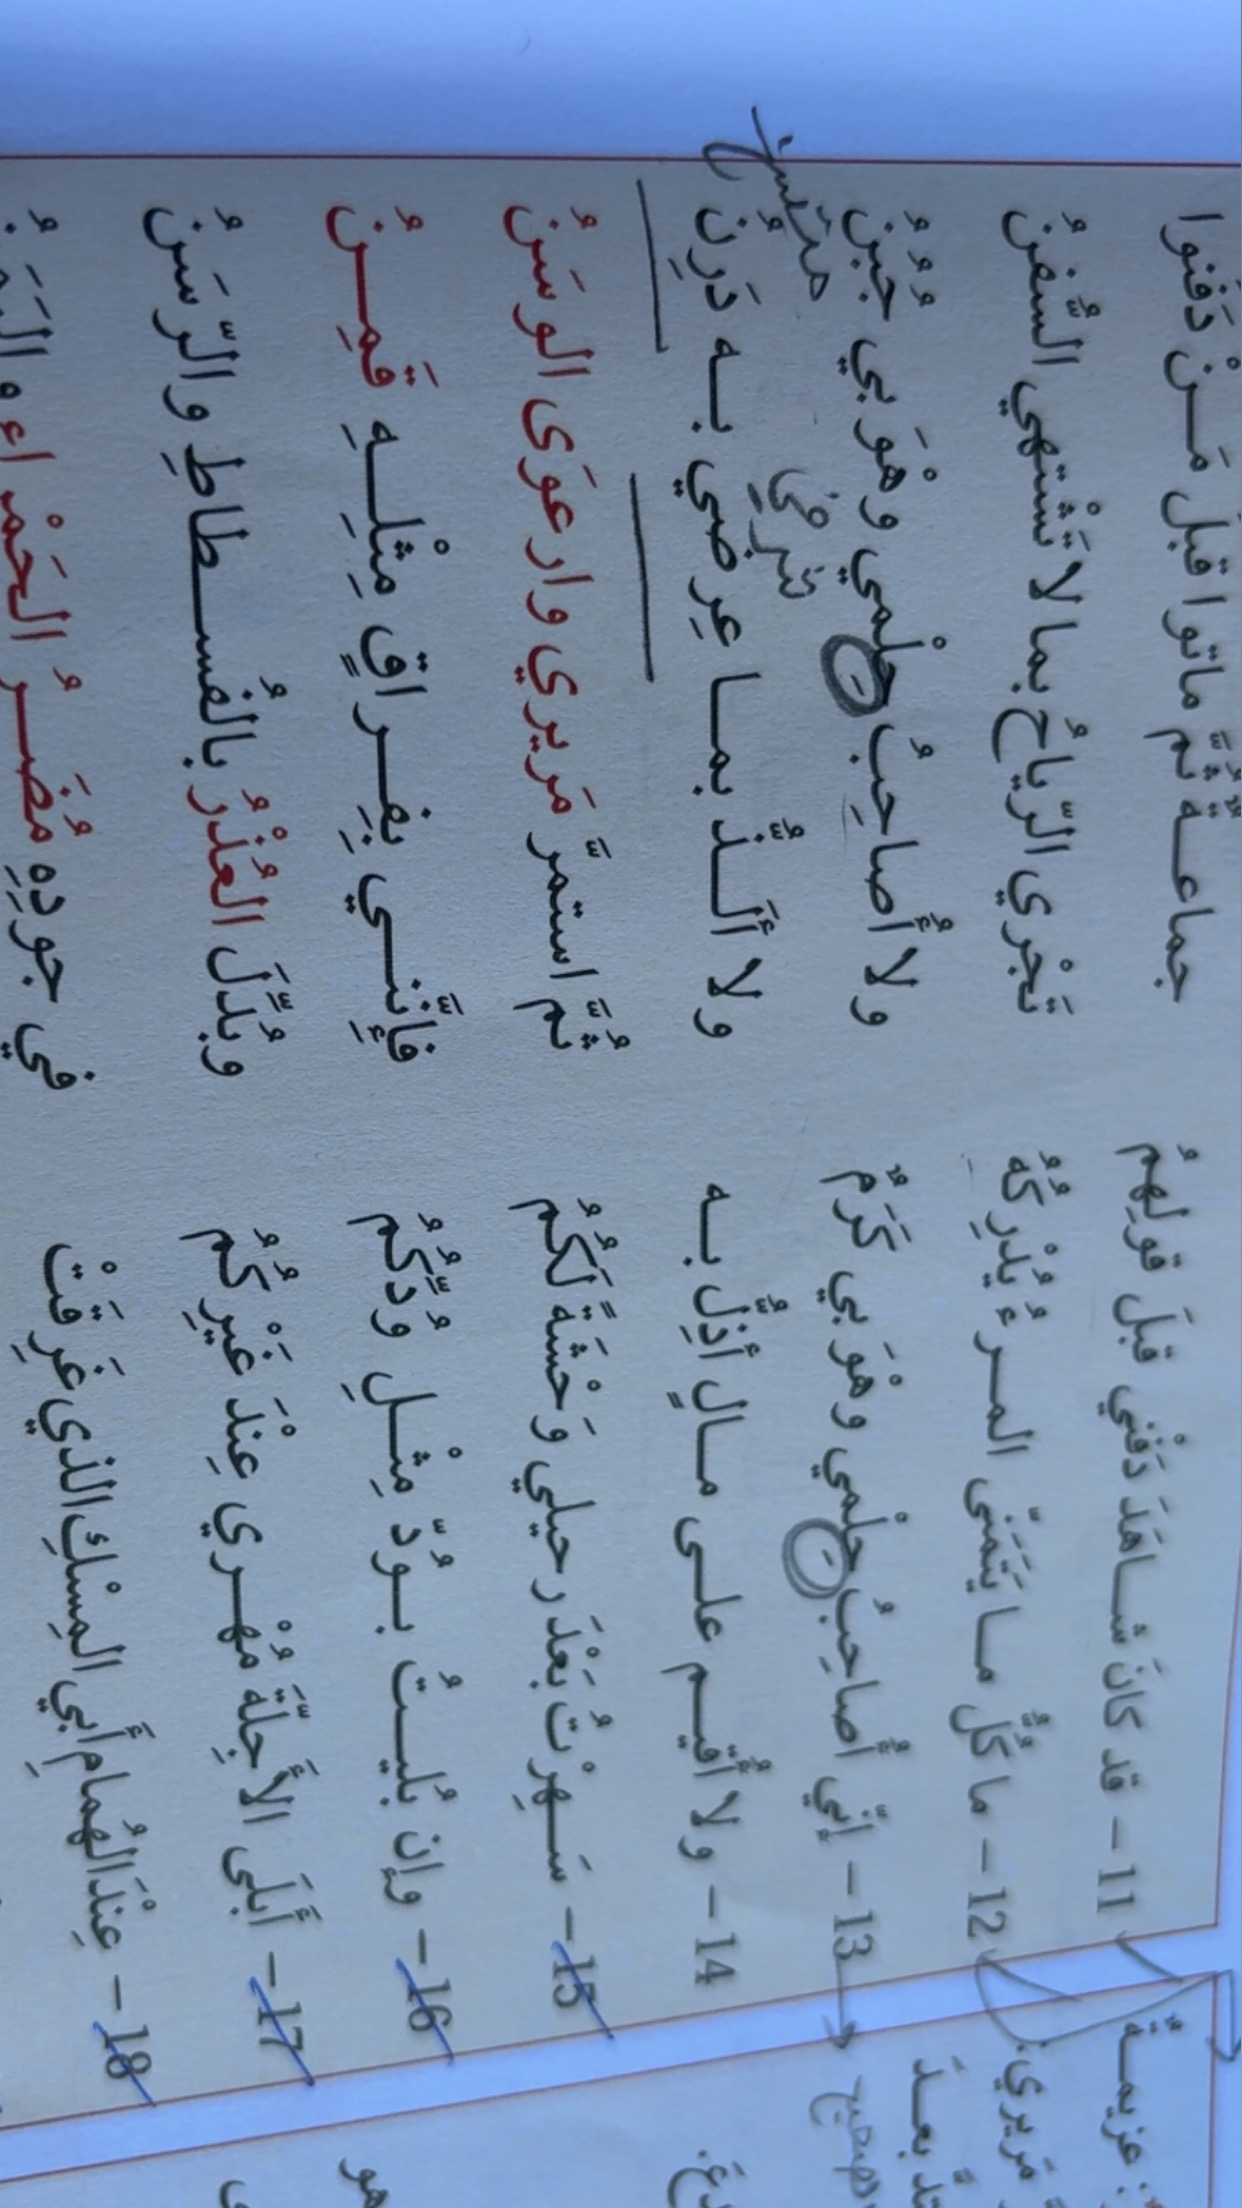 11 - قد كانَ شـاهَدَ دَفْني قبلَ قولِهمُ جماعـةٌ ثُمَّ ماتوا قبلَ مَـنْ دَفَنوا
12 - ما كلُّ مـا يَتَمَنّى المـرءُ يُدْرِكُهُ تَجْري الرّياحُ بما لا تَشْتَهي السُّفنُ
13 - إنّي أُصاحِبُ حِلْمي وهْوَ بي كَرَمٌ ولا أُصاحِبُ حِلْمي وهْوَ بي جبنُ
14 - ولا أُقيـم علـى مـالٍ أذِلُّ بـه ولا أَلَـذُّ بمـا عِرضي بـه دَرِنُ
شرفي
15 - سَـهِرْتُ بَعْدَ رحيلي وَحْشَةً لَكُمُ ثمَّ استمرَّ مَريري وارعوَى الوسَنُ
16 - وإن بُليـتُ بـوُدّ مِثْـلِ وُدِّكُمُ فإنَّنـي بفِـراقٍ مِثْلِـهِ قَمِـنُ
17 - أَبلَى الأَجِلّةَ مُهْـري عِنْدَ غَيْرِكُمُ وبُدِّلَ العُذْرُ بالفُسـطاطِ والرّسَنُ
18 - عِنْدَ الهُمامِ أَبي المِسْكِ الذي غَرِقَتْ في جودِهِ مُضَـرُ الحَمْراءِ واليَمَنُ
عزيمـة
مَريري:
بعـدَ
هو